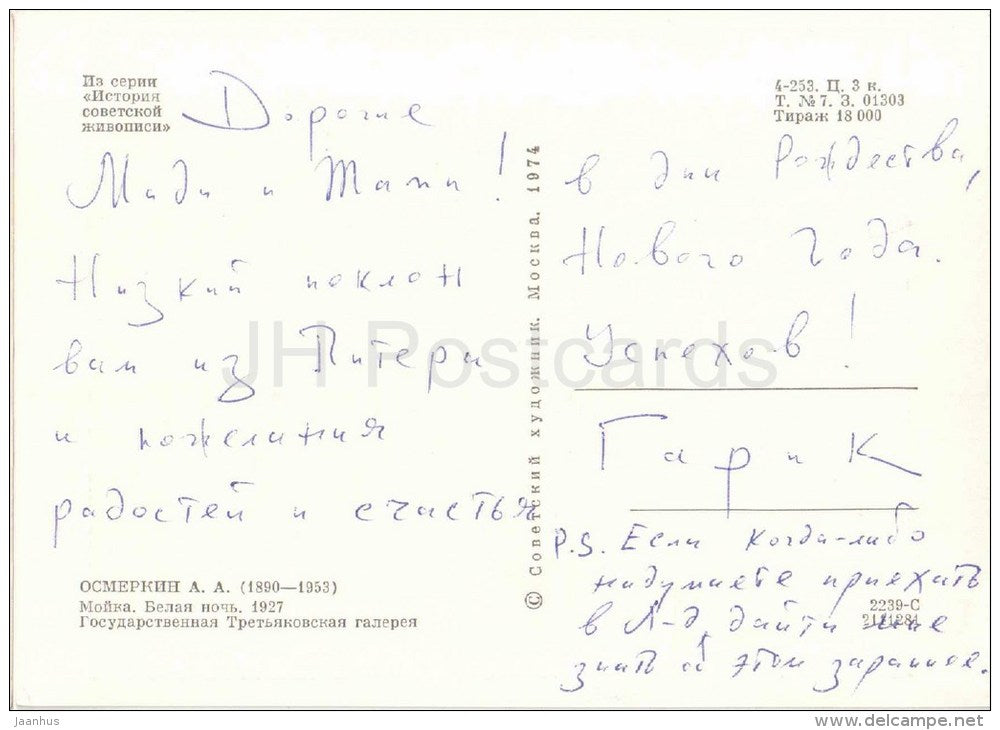 Из серии
«История
советской
живописи»
Дорогие
Мади и Тапи!
Низкий поклон
вам из Питера
и пожелания
радостей и счастья
в дни Рождества,
Нового Года.
Успехов!
Гарик
P.S. Если когда-либо
надумаете приехать
в Л-д, дайте мне
знать об этом заранее.
4-253. Ц. 3 к.
Т. № 7. З. 01303
Тираж 18 000
© Советский художник. Москва. 1974
ОСМЕРКИН А. А. (1890—1953)
Мойка. Белая ночь. 1927
Государственная Третьяковская галерея
2239-С
JH Postcards
Jaanhus
www.delcampe.net